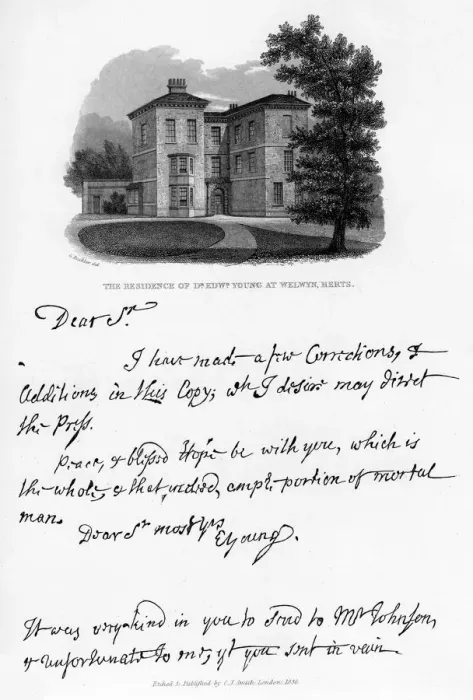 THE RESIDENCE OF DR. EDWD. YOUNG AT WELWYN, HERTS.
Dear Sr.
I have made a few Corrections, &
Additions in this Copy; wh I desire may direct
the Press.
Peace, & blessed Hope be with you, which is
the whole, & that, indeed, ample portion of mortal
man.
Dear Sr most yrs
EYoung.
It was very kind in you to send to Mr Johnson,
& unfortunate to me, yt you sent in vain.
Etched & Published by C. J. Smith, London, 1836